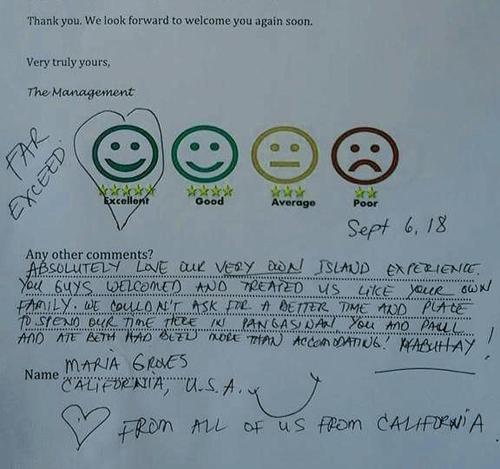 Thank you. We look forward to welcome you again soon.
Very truly yours,
The Management
FAR
EXCEED
Excellent Good Average Poor
Sept 6, 18
Any other comments?
ABSOLUTELY LOVE OUR VERY OWN ISLAND EXPERIENCE.
YOU GUYS WELCOMED AND TREATED US LIKE YOUR OWN
FAMILY. WE COULDN'T ASK FOR A BETTER TIME AND PLACE
TO SPEND OUR TIME HERE IN PANGASINAN. YOU AND PAUL
AND ATE BETH HAD BEEN MORE THAN ACCOMODATING! MABUHAY!
Name MARIA GROVES
CALIFORNIA, U.S.A.
FROM ALL OF US FROM CALIFORNIA